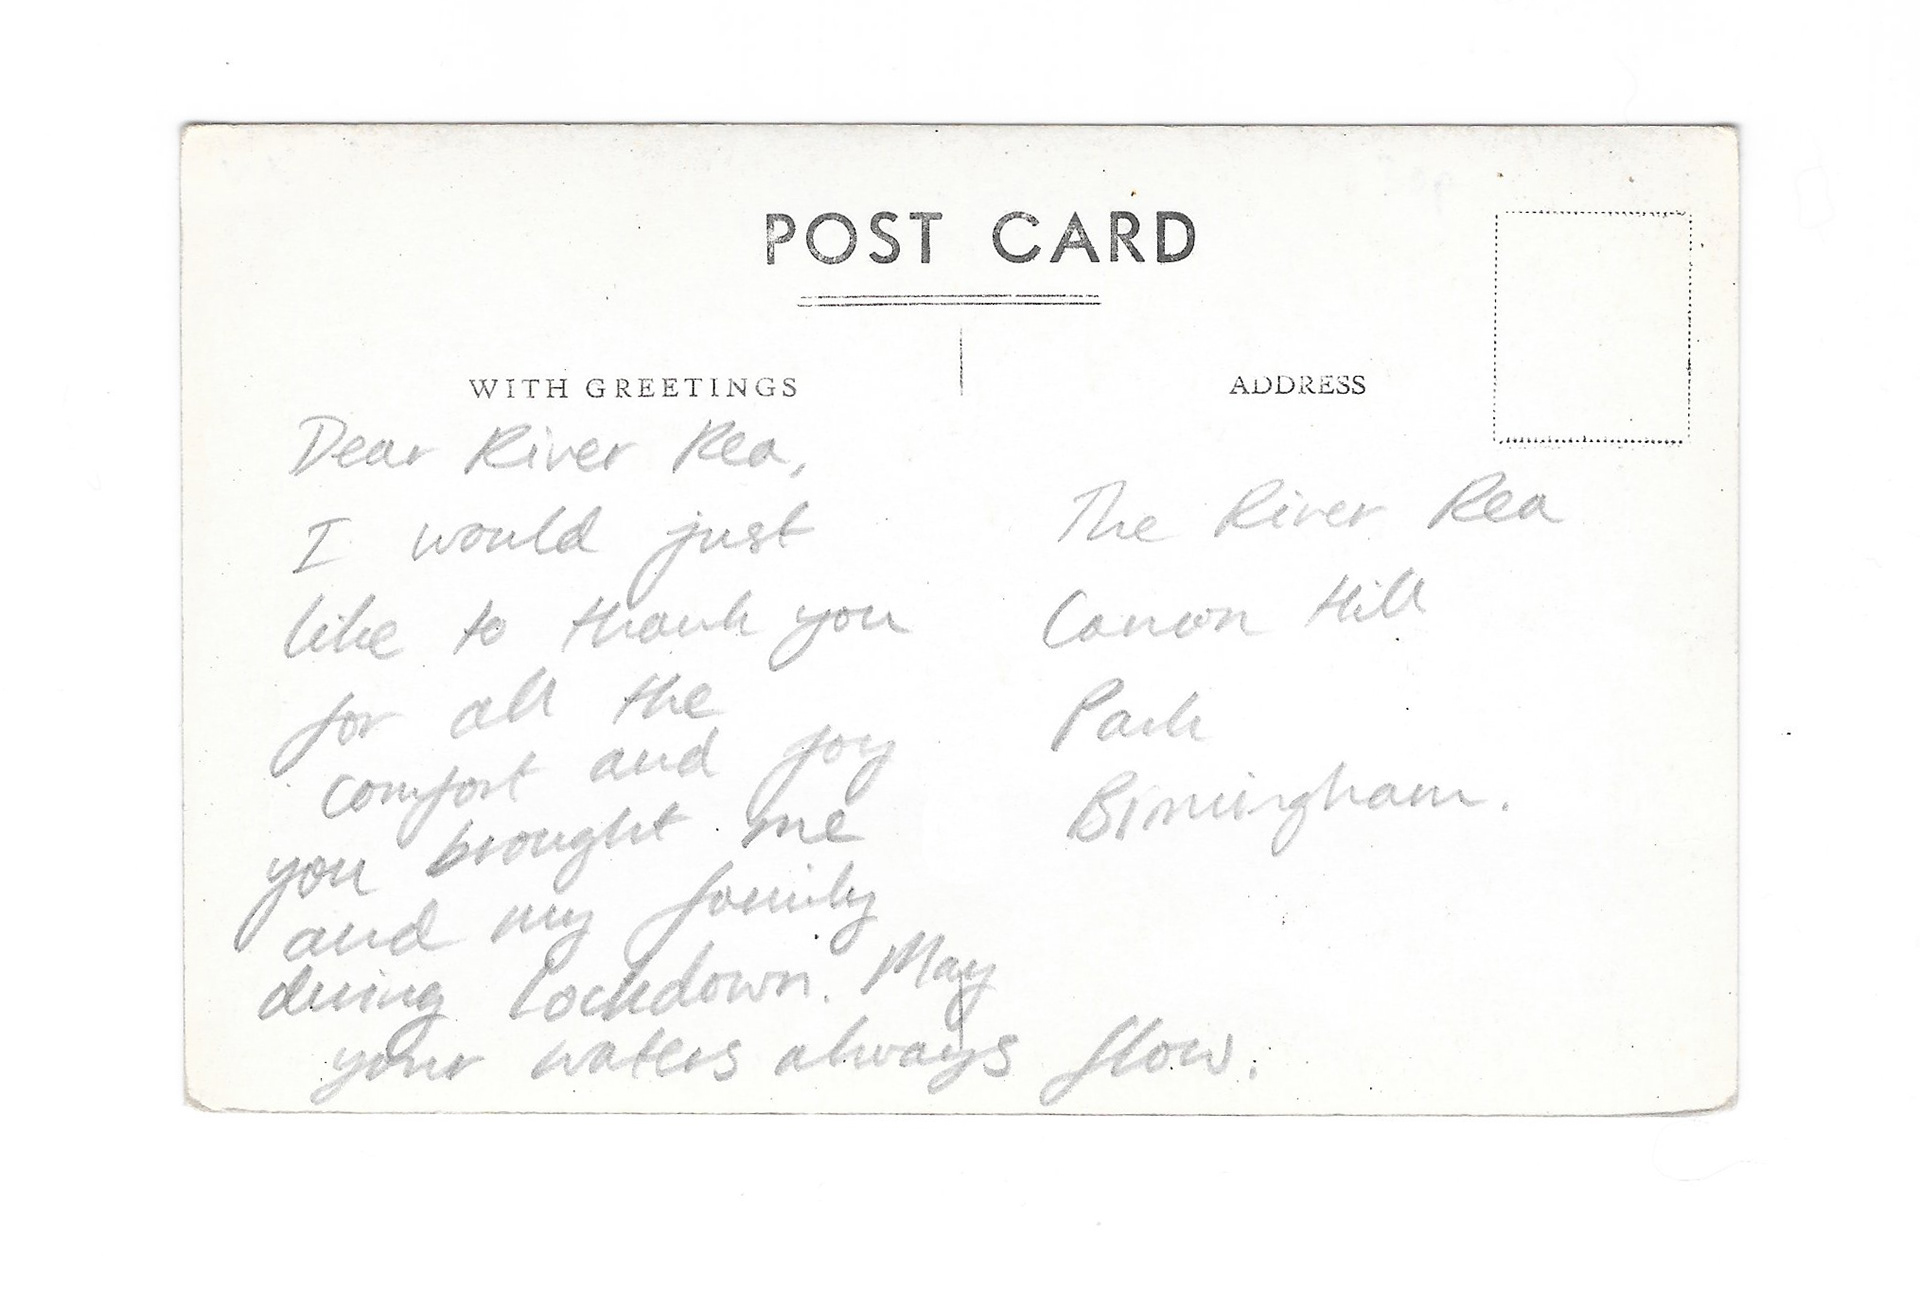 POST CARD
WITH GREETINGS
Dear River Rea,
I would just
like to thank you
for all the
comfort and joy
you brought me
and my family
during Lockdown. May
your waters always flow.
ADDRESS
The River Rea
Cannon Hill
Park
Birmingham.